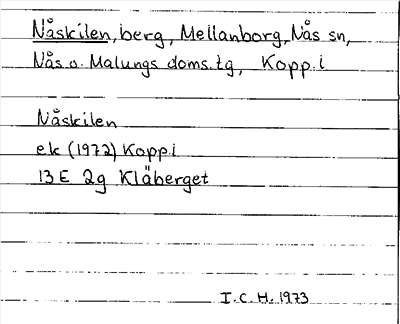 Nåskilen, berg, Mellanborg, Nås sn,
Nås o. Malungs doms.tg, Kopp.l
Nåskilen
ek (1972) Kopp.l
13 E 2g Kläberget
I.C.H. 1973